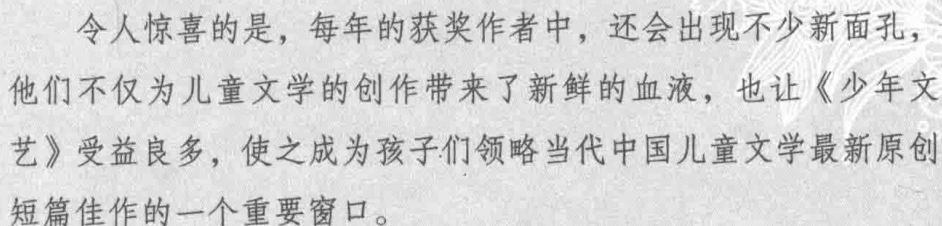 令人惊喜的是，每年的获奖作者中，还会出现不少新面孔，
他们不仅为儿童文学的创作带来了新鲜的血液，也让《少年文
艺》受益良多，使之成为孩子们领略当代中国儿童文学最新原创
短篇佳作的一个重要窗口。